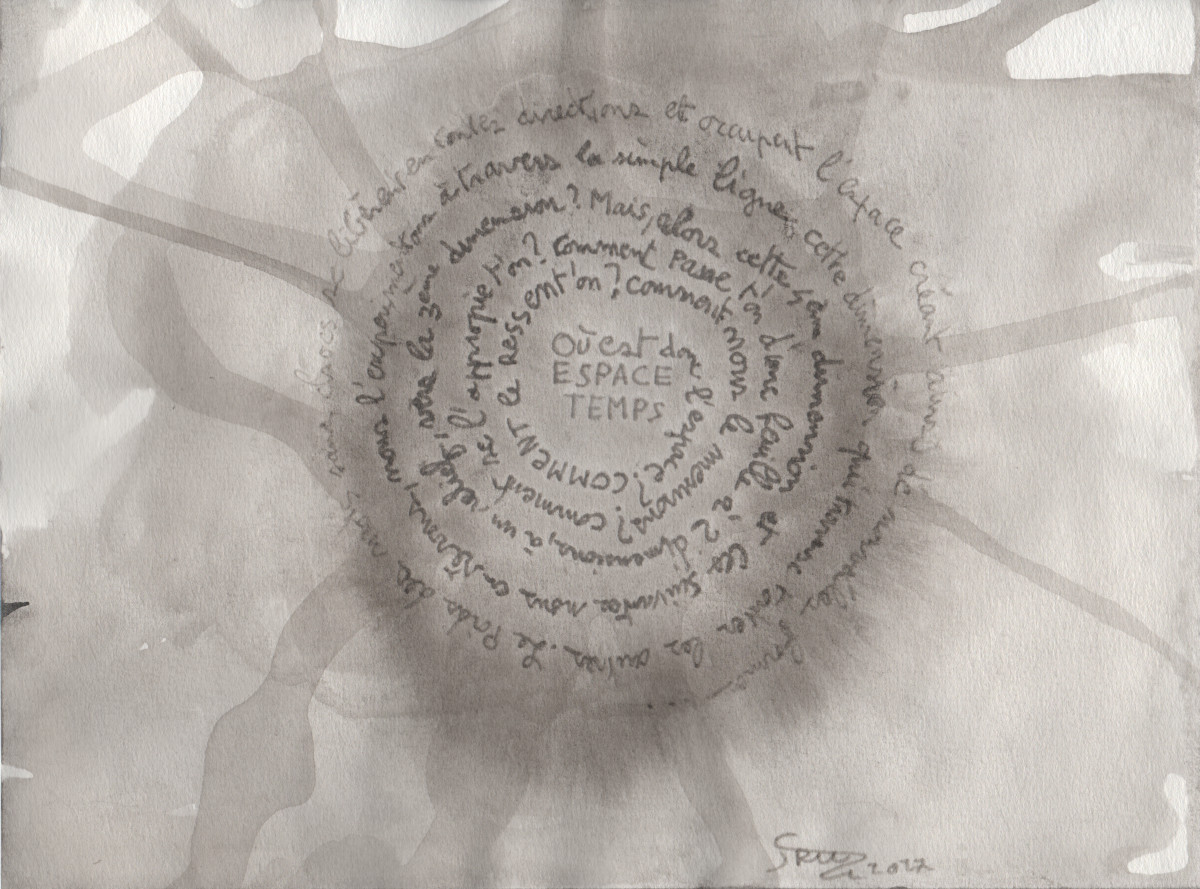 Où est donc
ESPACE
TEMPS
l'espace? COMMENT le RESSENT'on?
comment nous le mesurons? comment se l'approprie t'on?
Comment passe t'on d'une feuille à 2 dimensions, à un relief, vers la 3ème dimension?
Mais, alors cette dimension et les suivantes nous, nous à travers la simple ligne,
cette dimension qui traverse toutes les autres. Le Poids des mots sans blocs se libèrent en toutes directions et occupent l'espace créant ainsi de nouvelles formes....
2022